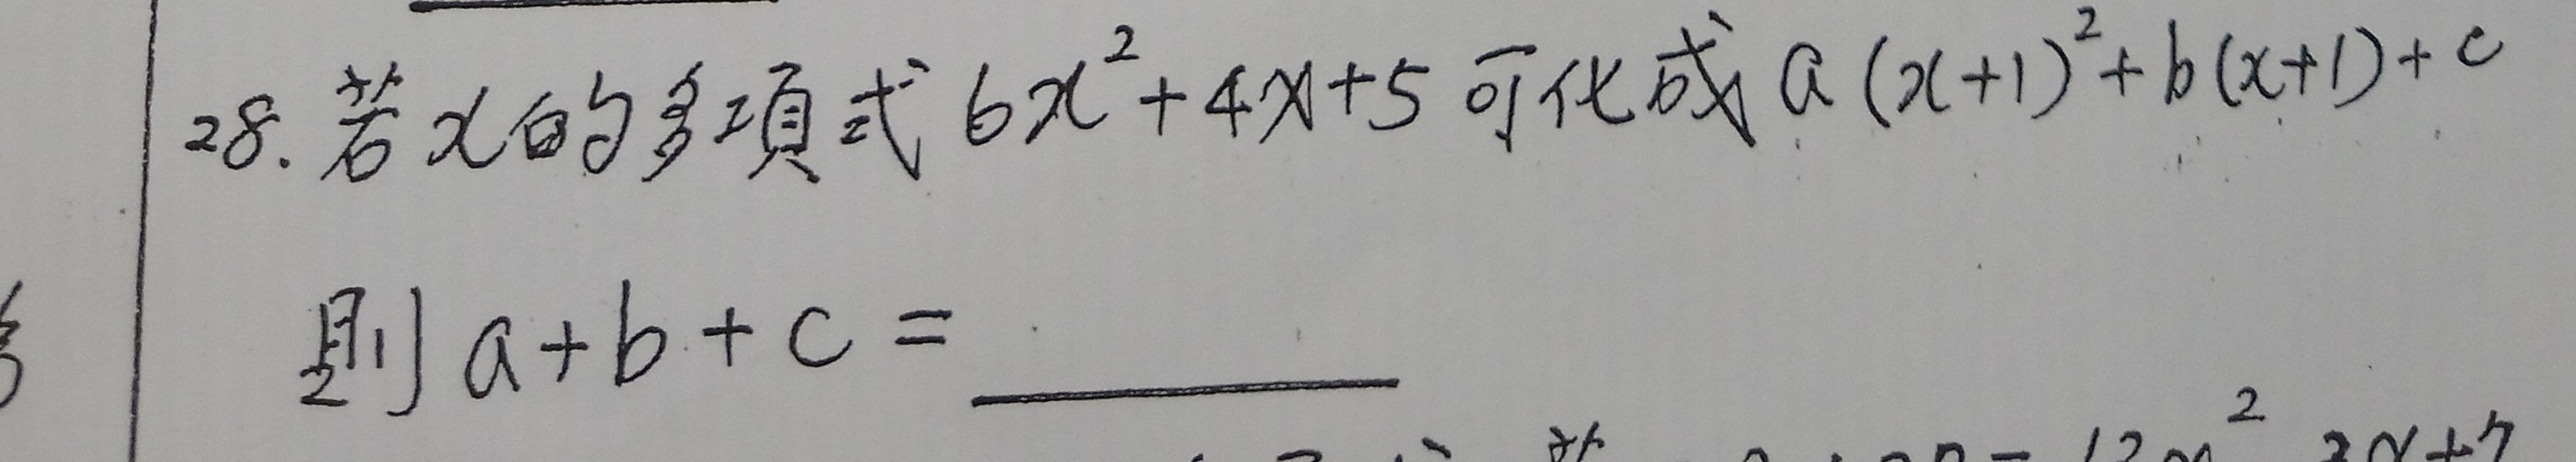 28. 若x的多項式 6x²+4x+5 可化成 a(x+1)²+b(x+1)+c
則 a+b+c = ______